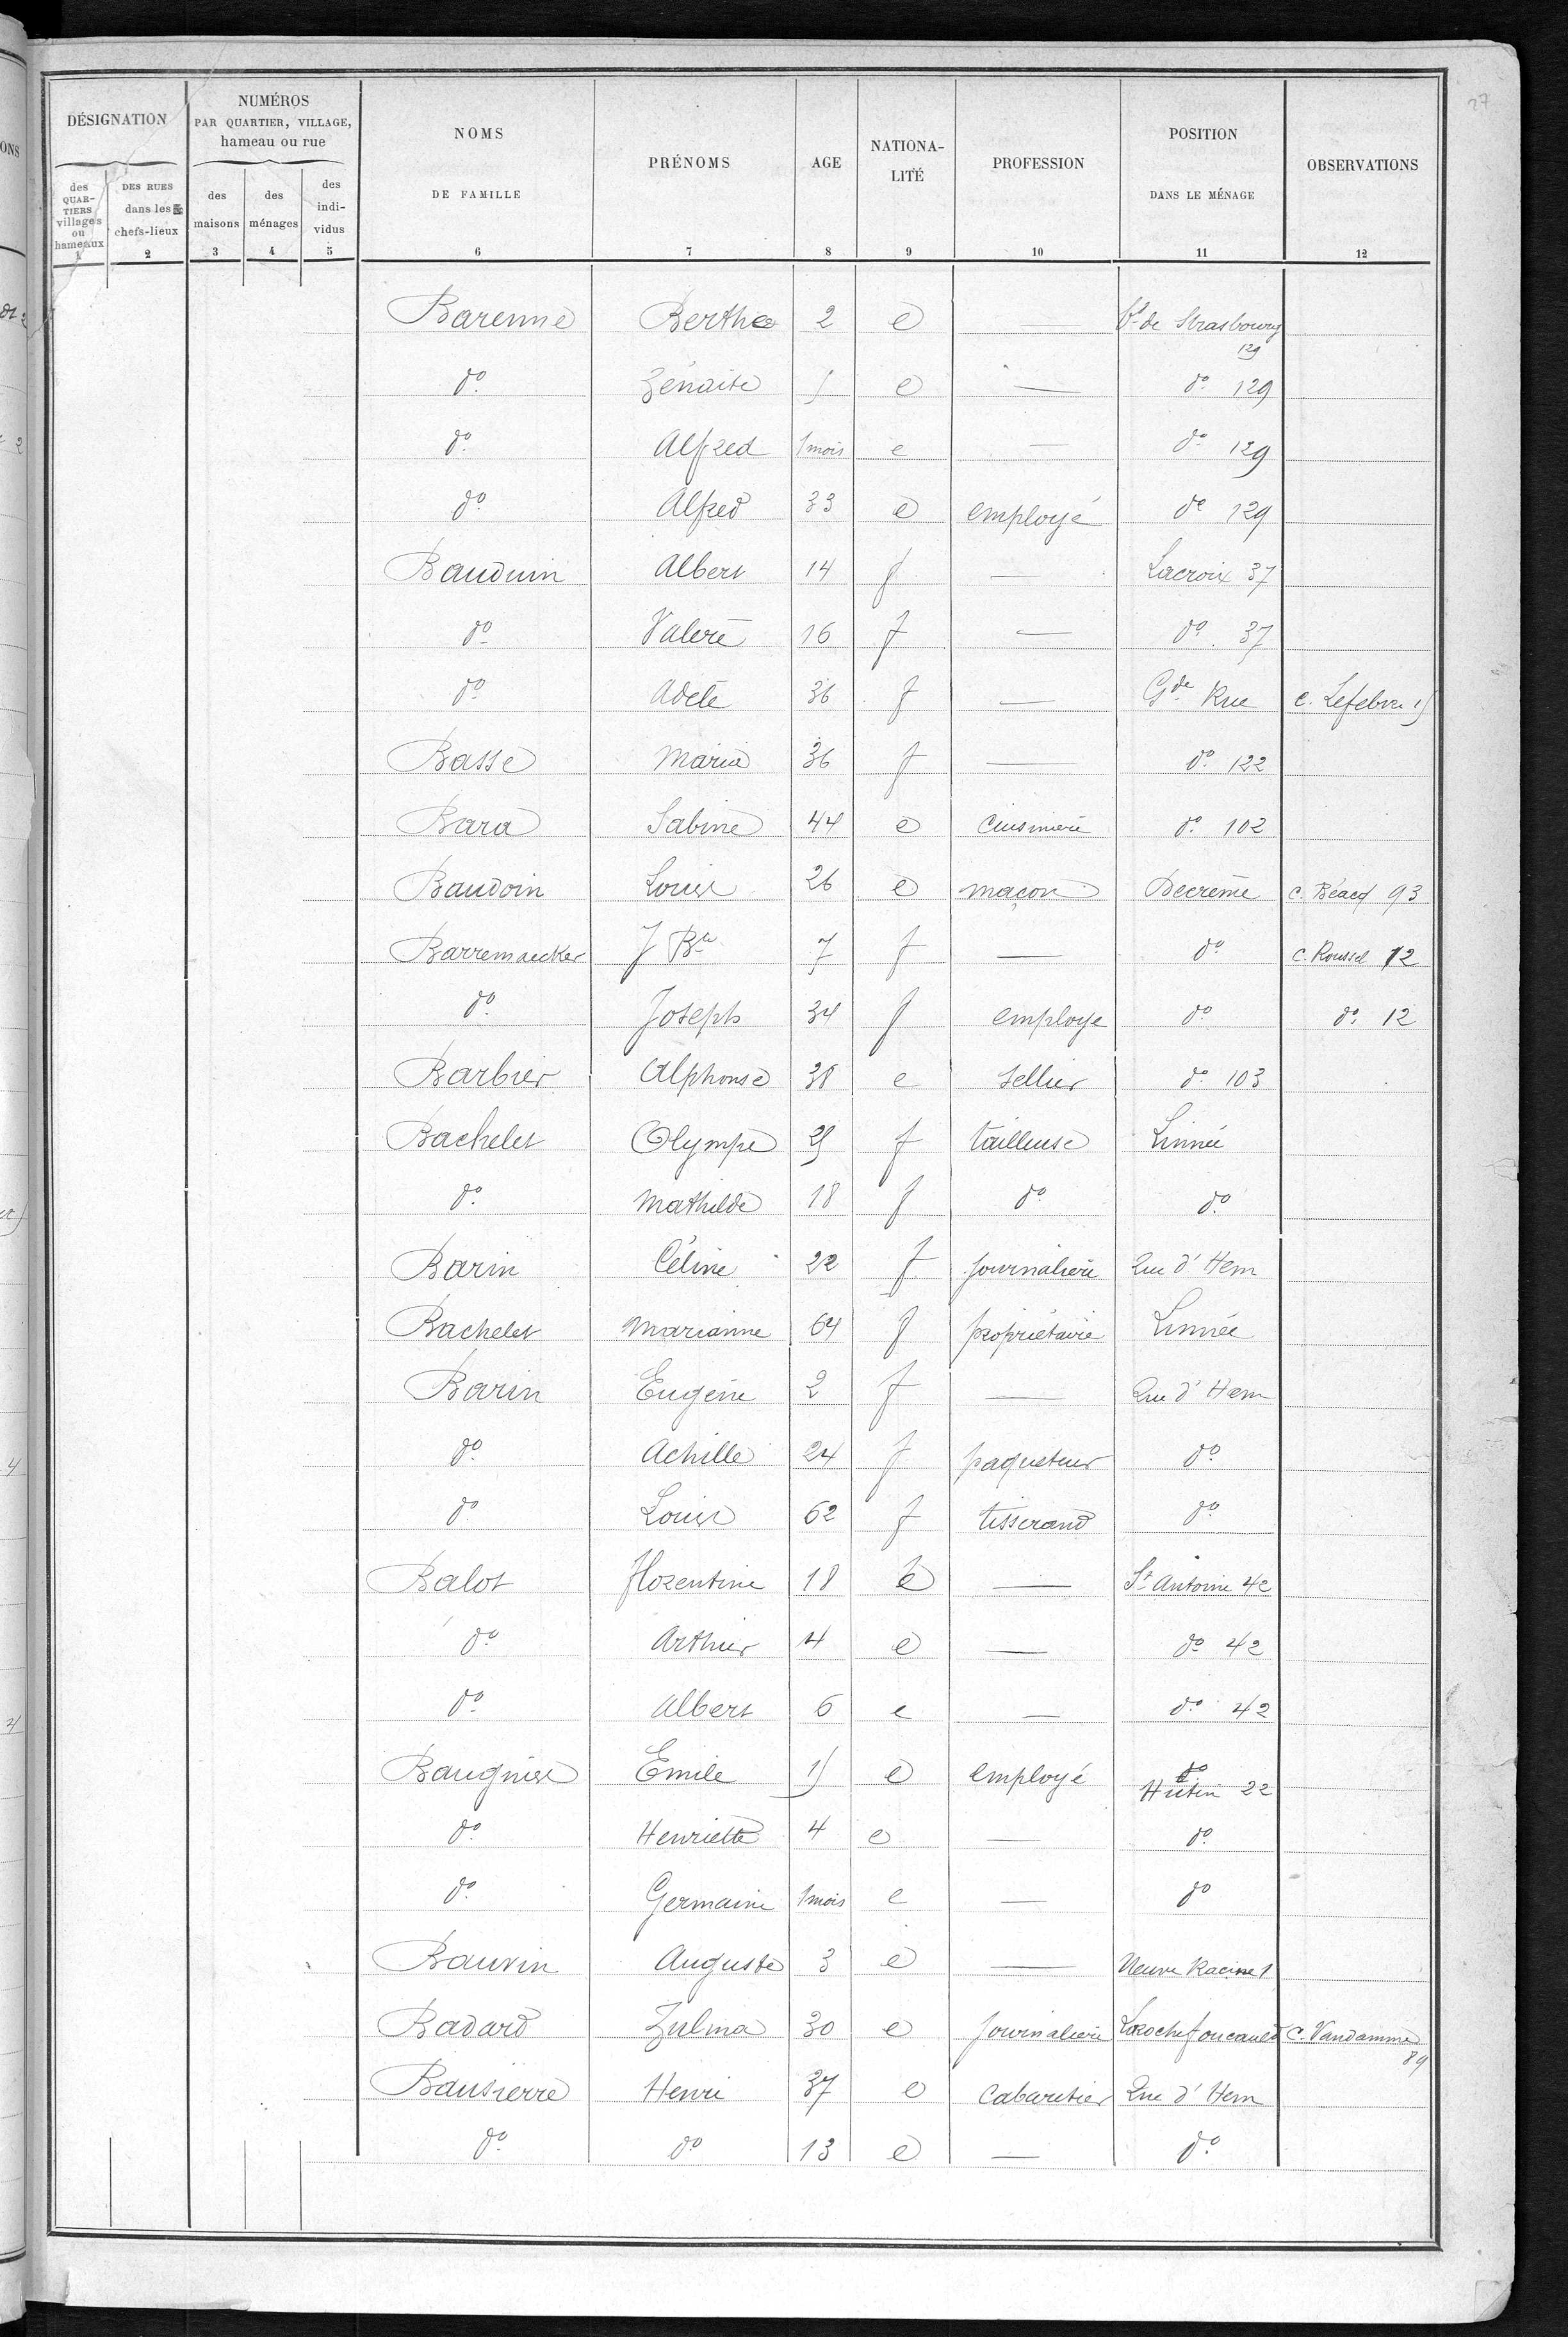 27
DÉSIGNATION
des QUARTIERS villages ou hameaux 1
DES RUES dans les chefs-lieux 2
NUMÉROS PAR QUARTIER, VILLAGE, hameau ou rue
des maisons 3
des ménages 4
des indi-vidus 5
NOMS DE FAMILLE 6
PRÉNOMS 7
AGE 8
NATIONA-LITÉ 9
PROFESSION 10
POSITION DANS LE MÉNAGE 11
OBSERVATIONS 12
Barenne Berthe 2 e — Bd de Strasbourg 129
do Zénaïse 5 e — do 129
do Alfred 1 mois e — do 129
do Alfred 33 e employé do 129
Bauduin Albert 14 f — Lacroix 37
do Valere 16 f — do 37
do Adele 36 f — Gde Rue c. Lefebvre 15
Basse Maria 36 f — do 122
Bara Sabine 44 e Cuisiniere do 102
Baudoin Louis 26 e maçon Decreme c. Béacq 93
Barremaecker J Bte 7 f — do c. Roussel 12
do Joseph 34 f employe do do 12
Barbier Alphonse 38 e Sellier do 103
Bachelet Olympe 25 f tailleuse Linnée
do Mathilde 18 f do do
Barin Céline 22 f journaliere Rue d'Hem
Bachelet Marianne 64 f propriétaire Linnée
Barin Eugène 2 f — Rue d'Hem
do Achille 24 f paqueteur do
do Louis 62 f tisserand do
Balot florentine 18 e — St Antoine 42
do Arthur 4 e — do 42
do Albert 6 e — do 42
Baugnies Emile 15 e employé do Hutin 22
do Henriette 4 e — do
do Germaine 1 mois e — do
Bauvin Auguste 3 e — Neuve Racine 1
Badard Zulma 30 e journaliere Larochefoucauld c. Vandamme 89
Bausierre Henri 37 e Cabaretier Rue d'Hem
do do 13 e — do